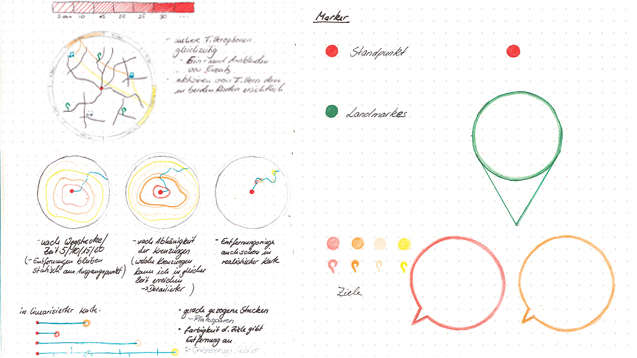 5 min 10 15 20 25 30
gleichzeitig
- Ein- und Ausblenden
von Events
in beiden Karten ersichtlich
- nach Wegstrecke/
Zeit 5/10/15/20
(- Entfernungen bleiben
statisch am Ausgangspunkt)
- nach Abhängigkeit
der Kreuzungen
(welche Kreuzungen
kann ich in gleicher
Zeit erreichen
→ detaillierter)
- Entfernungsringe
auch schon in
realistischer Karte
in linearisierter Karte
• gerade gezogene Strecken
• Farbigkeit d. Ziele gibt
Entfernung an
Marker
Standpunkt
Landmarkes
Ziele